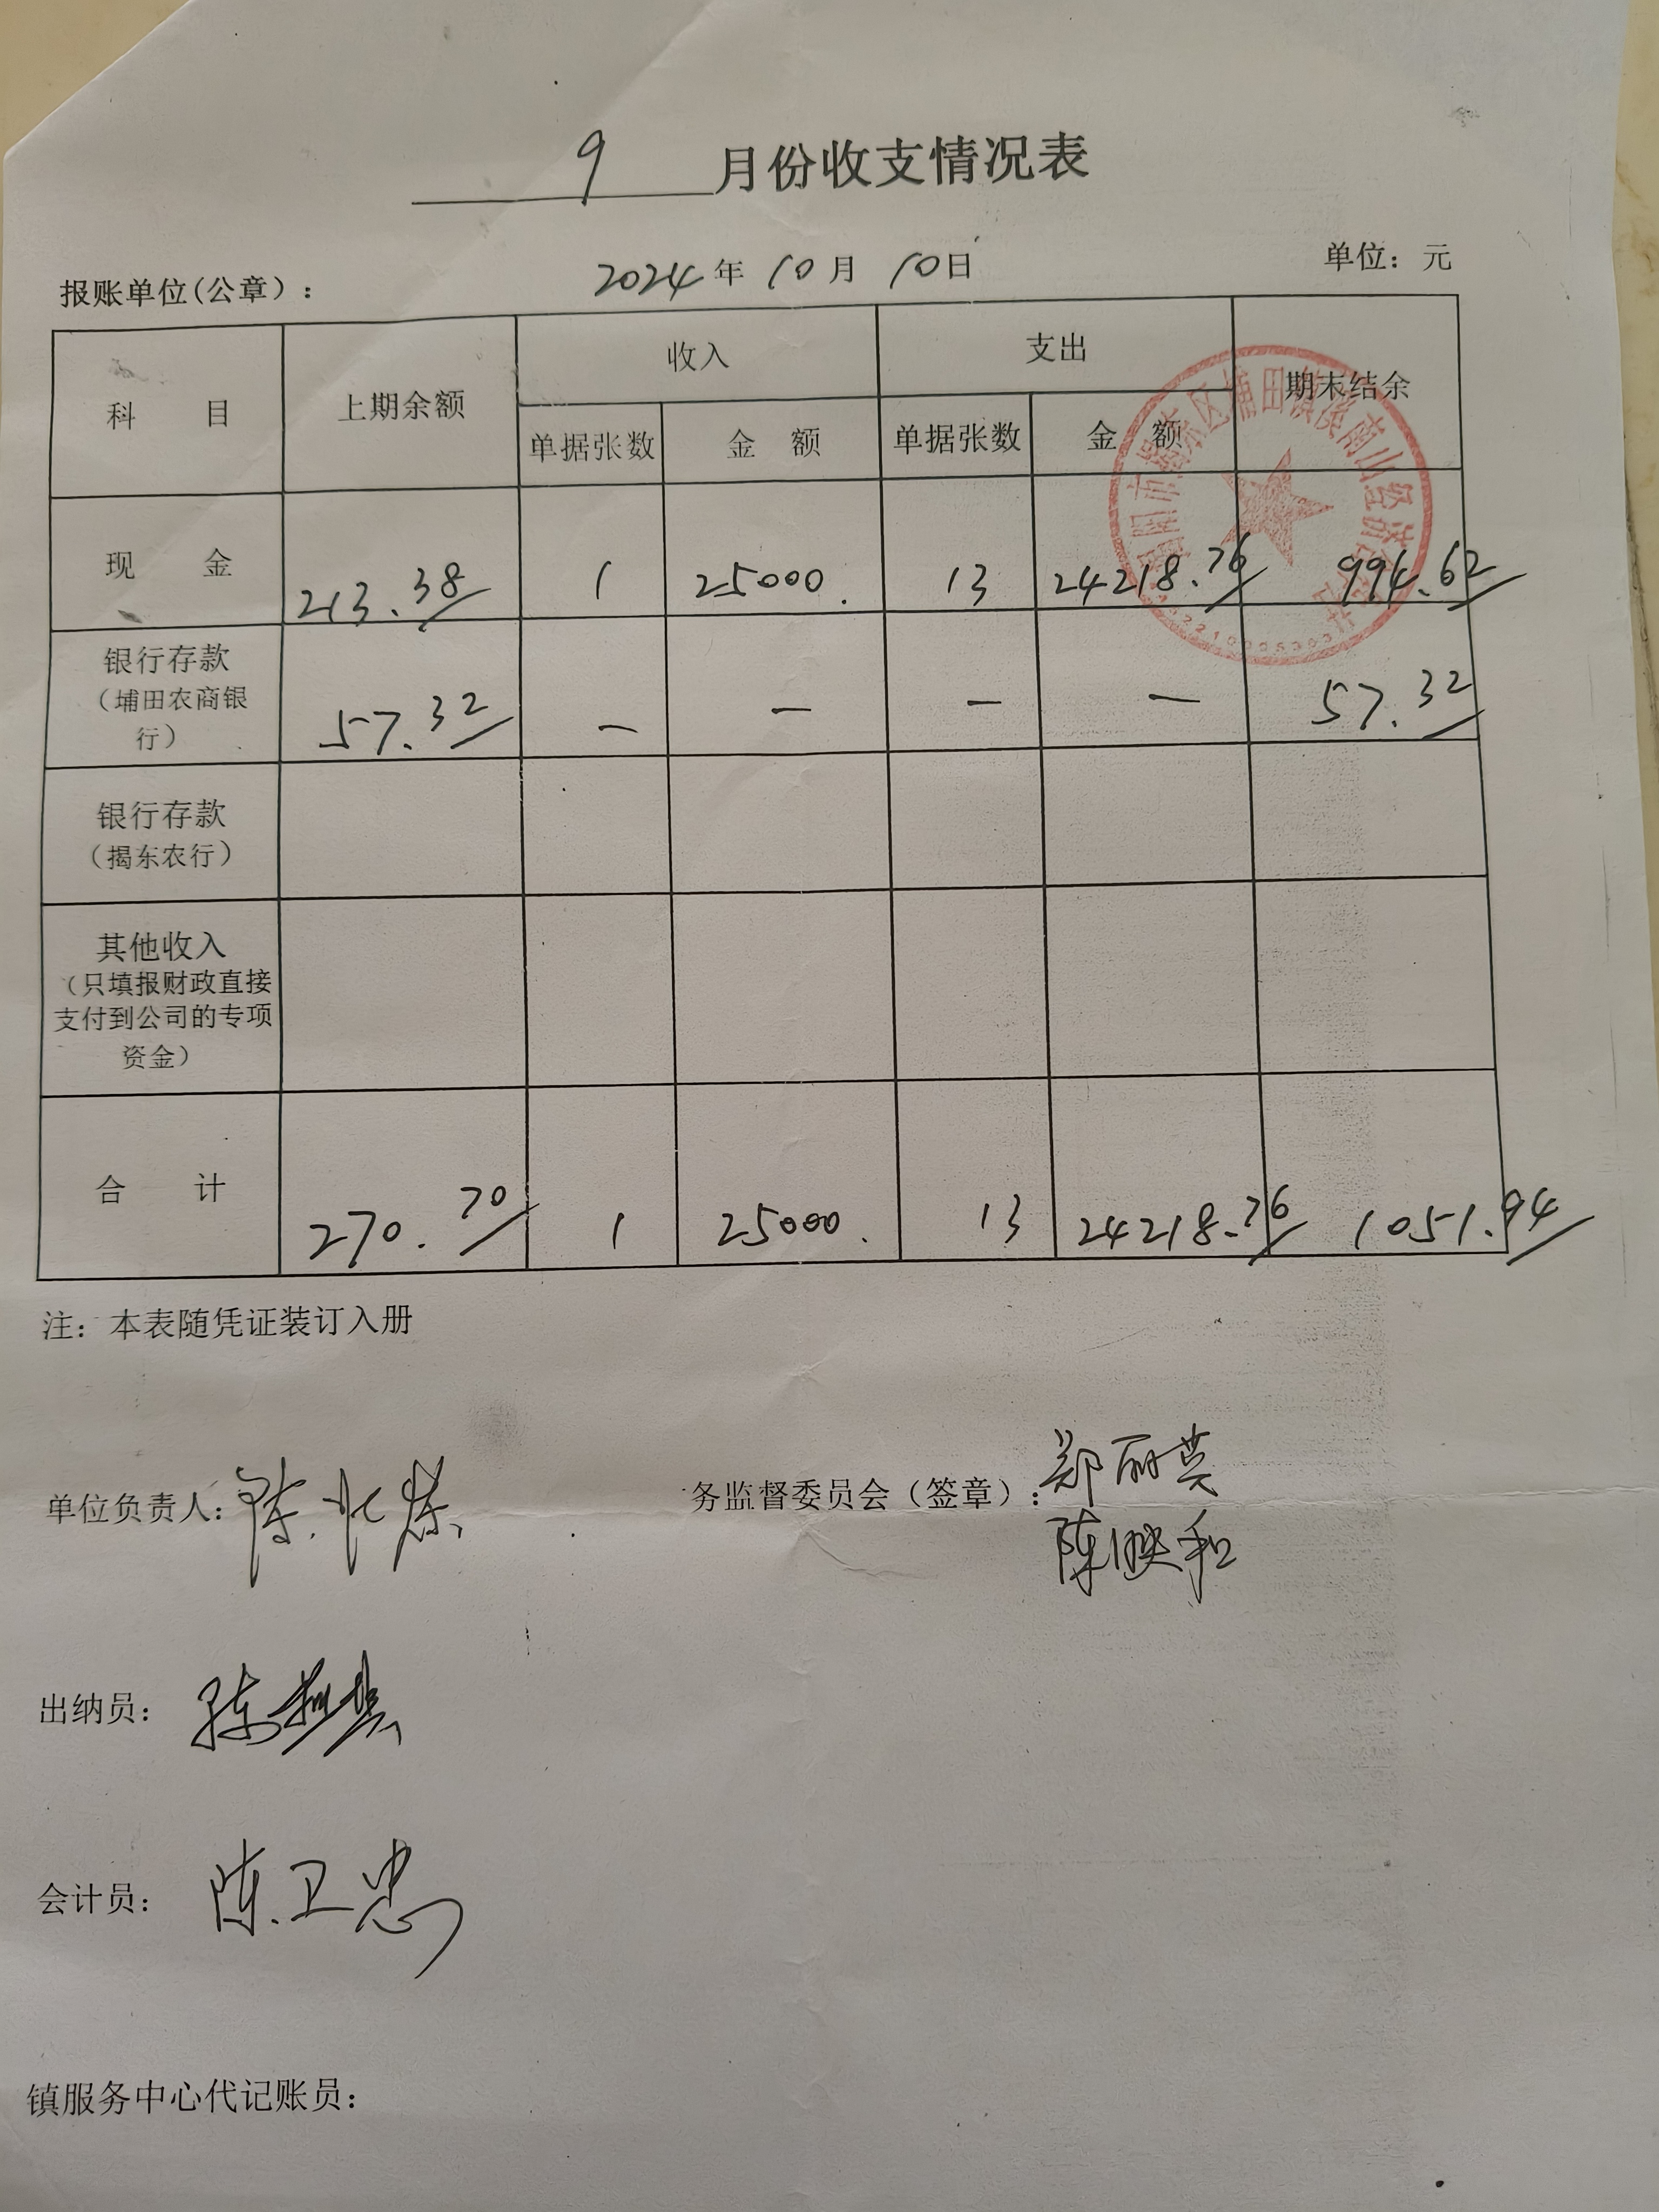 9 月份收支情况表
报账单位(公章): 2024年 10月 10日 单位: 元
科 目 上期余额 收入 支出 期末结余
单据张数 金 额 单据张数 金 额
现 金 213.38 1 25000. 13 24218.76 994.62
银行存款
(埔田农商银
行) 57.32 — — — — 57.32
银行存款
(揭东农行)
其他收入
(只填报财政直接
支付到公司的专项
资金)
合 计 270.70 1 25000. 13 24218.76 1051.94
注: 本表随凭证装订入册
单位负责人: 陈 务监督委员会(签章): 郑丽英
陈映和
出纳员: 陈
会计员: 陈卫忠
镇服务中心代记账员: